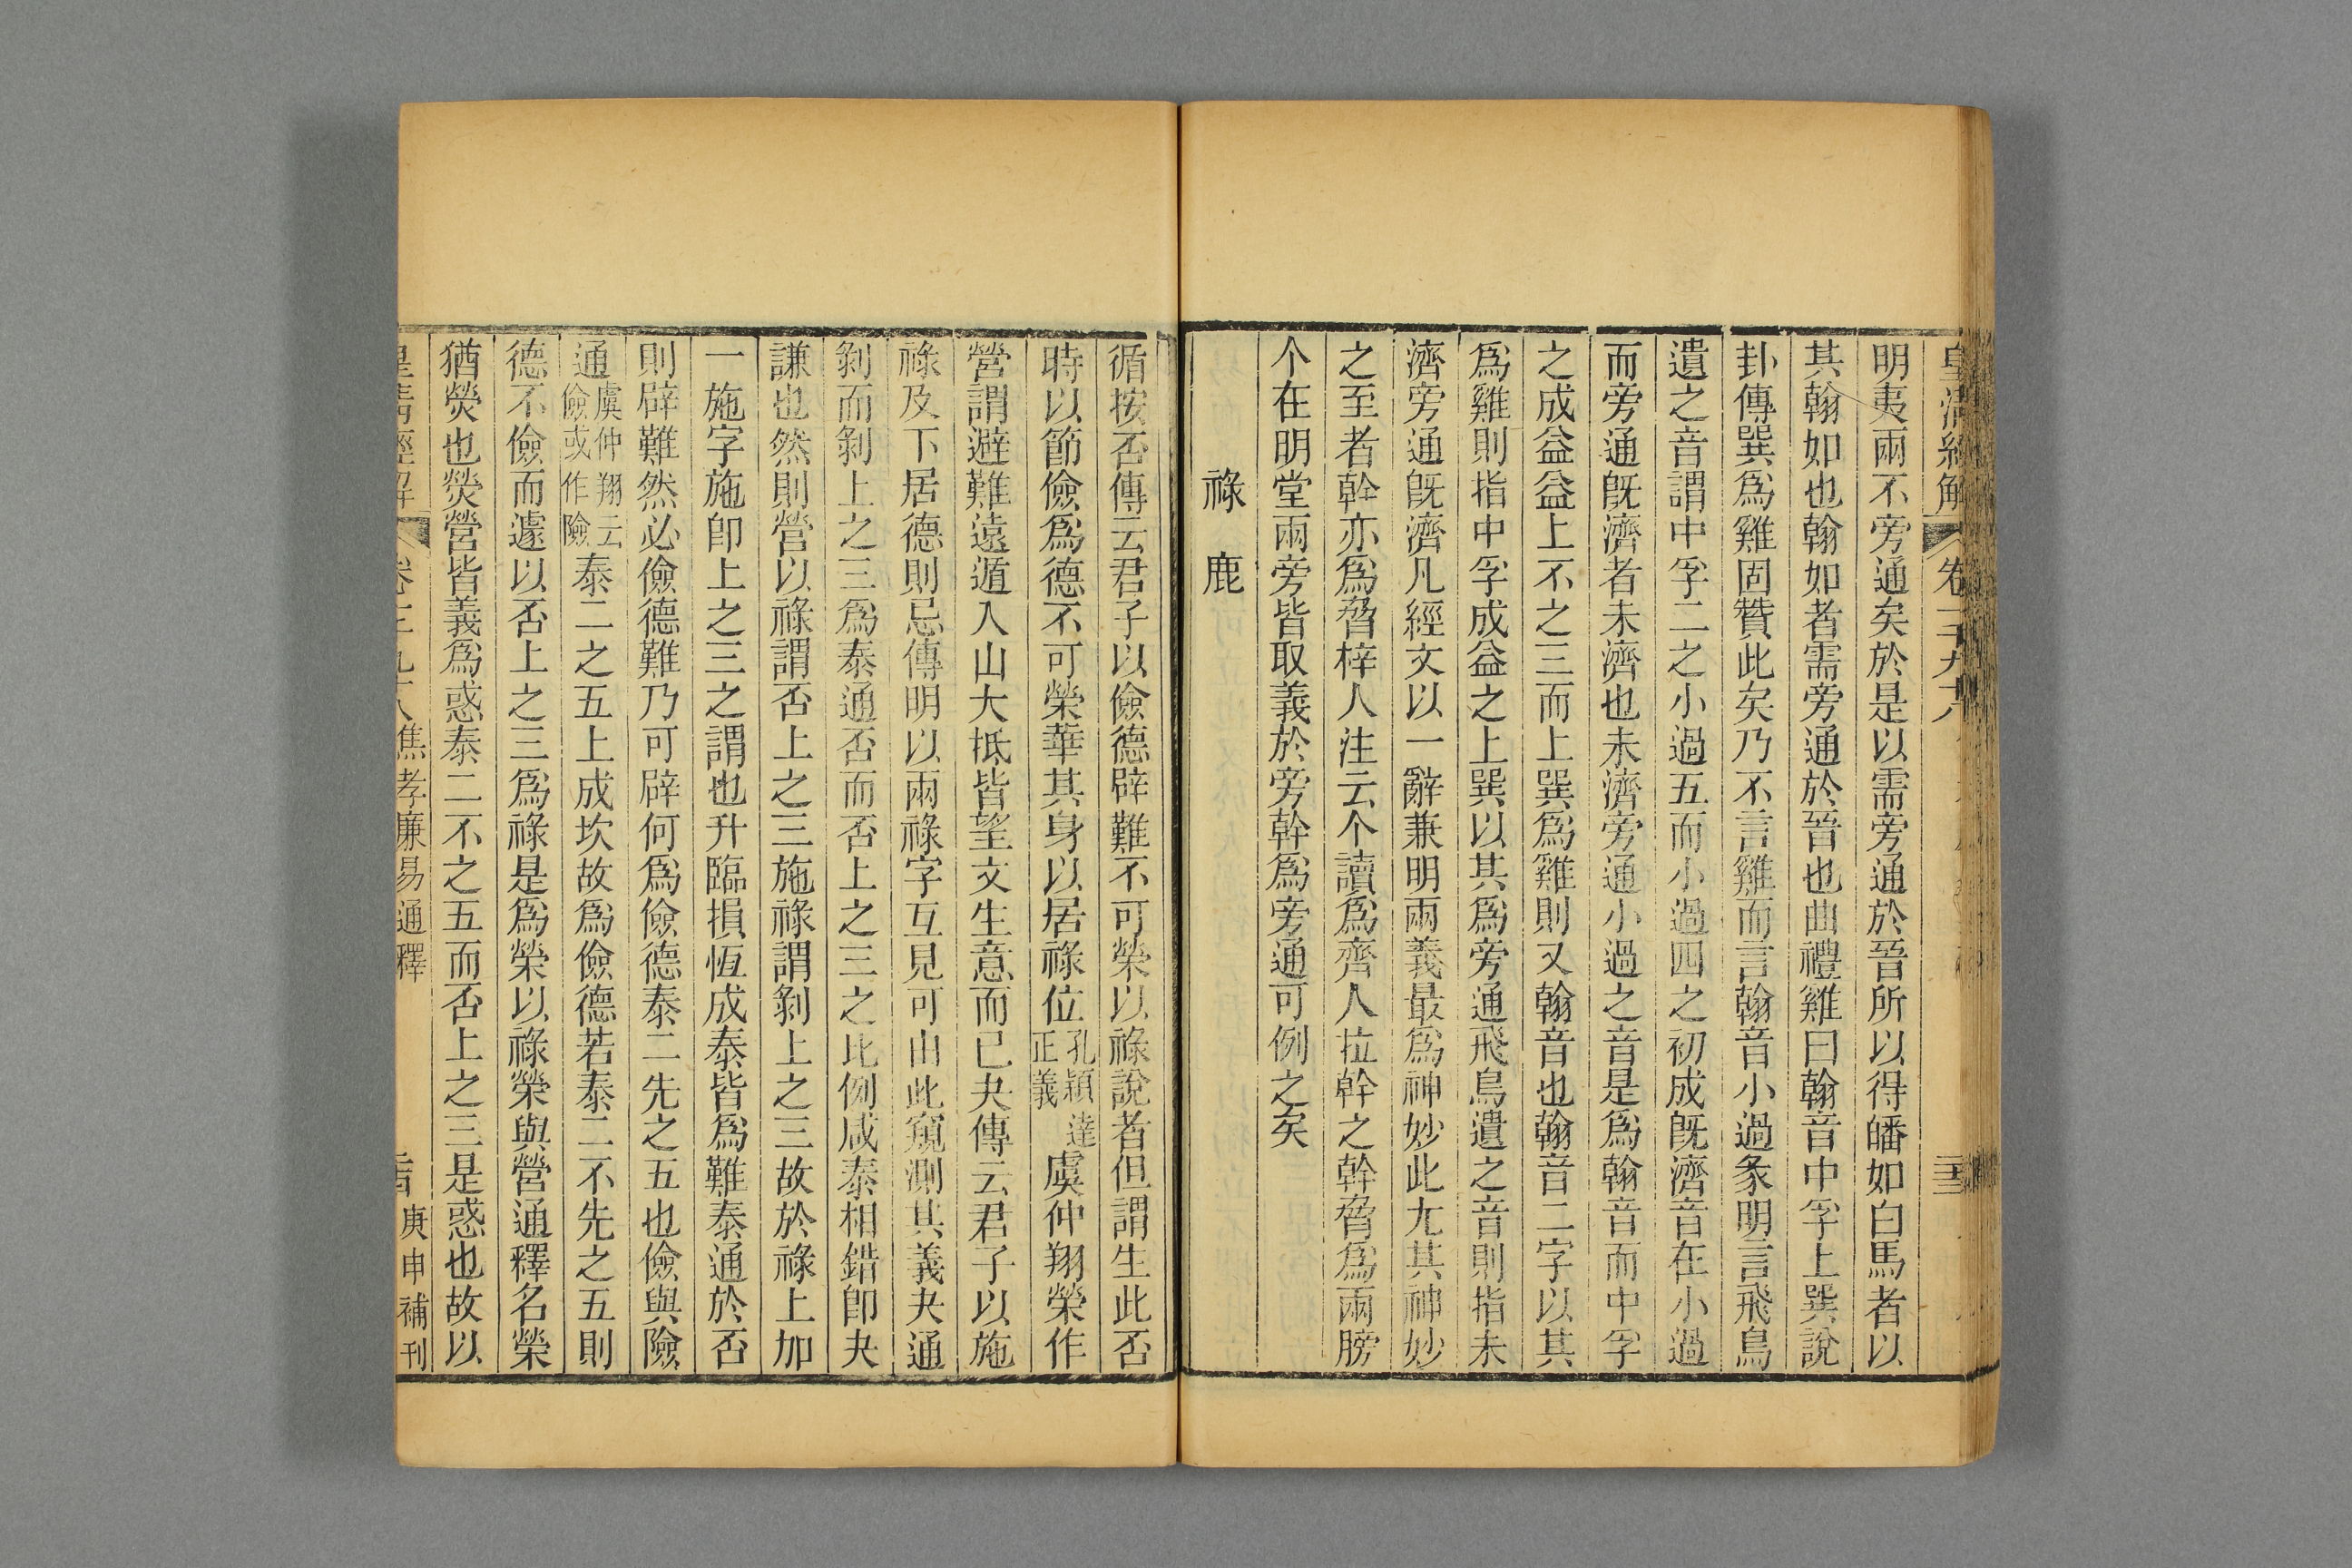 皇清經解 卷一千九十八
明夷兩不旁通矣於是以需旁通於晉所以得皤如白馬者以
其翰如也翰如者需旁通於晉也曲禮雞曰翰音中孚上巽說
卦傳巽爲雞固贊此矣乃不言雞而言翰音小過彖明言飛鳥
遺之音謂中孚二之小過五而小過四之初成旣濟音在小過
而旁通旣濟者未濟也未濟旁通小過之音是爲翰音而中孚
之成益益上不之三而上巽爲雞則又翰音也翰音二字以其
爲雞則指中孚成益之上巽以其爲旁通飛鳥遺之音則指未
濟旁通旣濟凡經文以一辭兼明兩義最爲神妙此尢其神妙
之至者幹亦爲脅梓人注云个讀爲齊人拉幹之幹脅爲兩膀
个在明堂兩旁皆取義於旁幹爲旁通可例之矣
祿 鹿
循按否傳云君子以儉德辟難不可榮以祿說者但謂生此否
時以節儉爲德不可榮華其身以居祿位孔穎達正義虞仲翔榮作
營謂避難遠遁入山大抵皆望文生意而已夬傳云君子以施
祿及下居德則忌傳明以兩祿字互見可由此窺測其義夬通
剝而剝上之三爲泰通否而否上之三之比例咸泰相錯卽夬
謙也然則營以祿謂否上之三施祿謂剝上之三故於祿上加
一施字施卽上之三之謂也升臨損恆成泰皆爲難泰通於否
則辟難然必儉德難乃可辟何爲儉德泰二先之五也儉與險
通虞仲翔云儉或作險泰二之五上成坎故爲儉德若泰二不先之五則
德不儉而遽以否上之三爲祿是爲榮以祿榮與營通釋名榮
猶熒也熒營皆義爲惑泰二不之五而否上之三是惑也故以
皇清經解 卷一千九十八 焦孝廉易通釋 庚申補刊